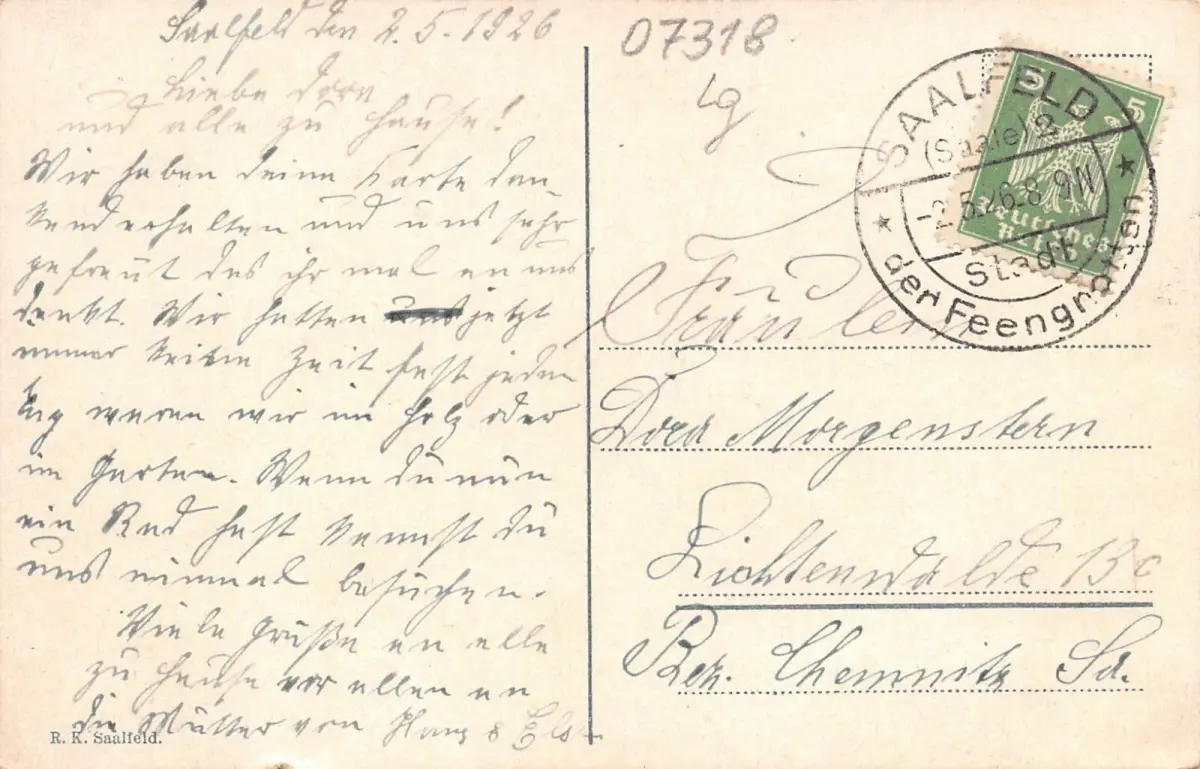 Saalfeld den 2.5.1926
Liebe Dora
und alle zu Hause!
Wir haben deine Karte dan-
kend erhalten und uns sehr
gefreut das ihr mal an uns
denkt. Wir hatten uns jetzt
immer keine Zeit fast jeden
Tag waren wir im Holz oder
im Garten. Wenn du nun
ein Rad hast kannst du
uns einmal besuchen.
Viele Grüße an alle
zu Hause vor allen an
die Mutter von &
R. K. Saalfeld.
07318
SAALFELD
(Saale) 2
-2.5.26.8-9N
Stadt
der Feengrotten
5 5
Deutsches
Reich
Fräulein
Dora Morgenstern
Lichtenwalde 13c
Bez. Chemnitz Sa.